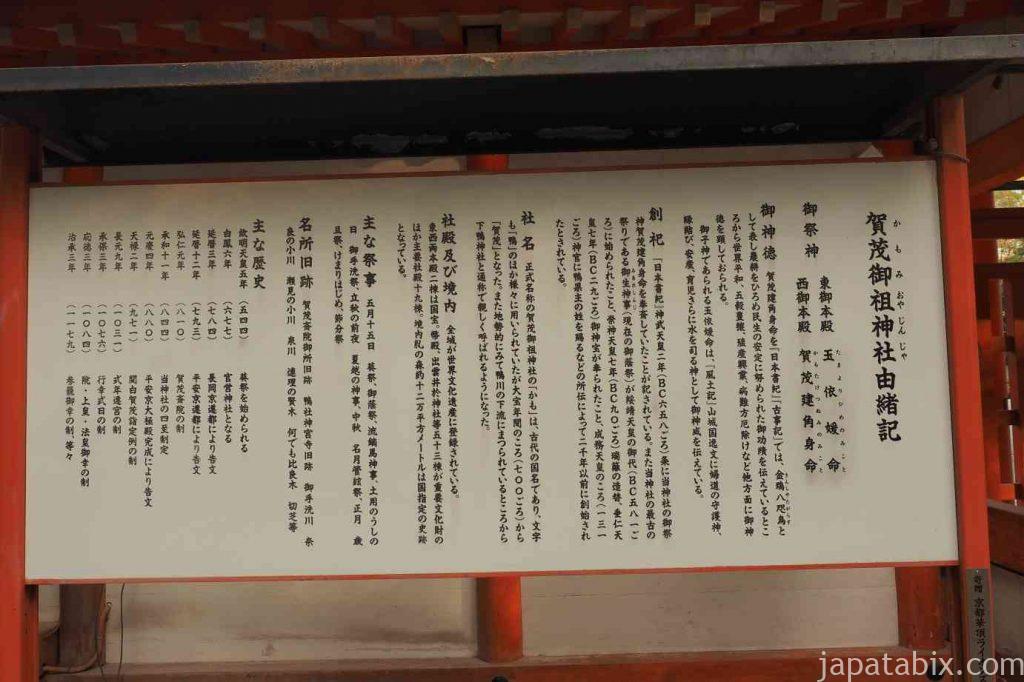 賀茂御祖神社由緒記
かもみおやじんじゃ
御祭神
東御本殿 玉依媛命
たまよりひめのみこと
西御本殿 賀茂建角身命
かもたけつぬみのみこと
御神徳 賀茂建角身命を「日本書紀」「古事記」では、金鵄八咫烏と
して表し農耕をひろめ民生の安定に努められた御功績を伝えているとこ
ろから世界平和、五穀豊穣、殖産興業、病難方厄除けなど他方面に御神
徳を顕しておられる。
御子神であられる玉依媛命は、「風土記」山城国逸文に婦道の守護神、
縁結び、安産、育児さらに水を司る神として御神威を伝えている。
創祀 「日本書紀」神武天皇二年(BC六五八ごろ)条に当神社の御祭
神賀茂建角身命を奉斎していたことが記されている。また当神社の最古の
祭りである御生神事(現在の御蔭祭)が綏靖天皇の御代(BC五八一ご
ろ)に始められたこと、崇神天皇七年(BC九〇ごろ)瑞籬の造替、垂仁天
皇七年(BC二九ごろ)御神宝が奉られたこと、成務天皇のころ(一三一
ごろ)神宮に鴨県主の姓を賜るなどの所伝によって二千年以前に創始され
たとされている。
社名 正式名称の賀茂御祖神社の「かも」は、古代の国名であり、文字
も「鴨」のほか様々に用いられていたが大宝年間のころ(七〇〇ごろ)から
「賀茂」となった。また地勢的にみて鴨川の下流にまつられているところから
下鴨神社と通称で親しく呼ばれるようになった。
社殿及び境内 全域が世界文化遺産に登録されている。
東西両本殿二棟は国宝。幣殿、出雲井於神社等五十三棟が重要文化財の
ほか主要社殿十九棟。境内糺の森約十二万平方メートルは国指定の史跡
となっている。
主な祭事 五月十五日 葵祭、御蔭祭、流鏑馬神事、土用のうしの
日 御手洗祭、立秋の前夜 夏越の神事、中秋 名月管絃祭、正月 歳
旦祭、けまりはじめ、節分祭
名所旧跡 賀茂斎院御所旧跡 鴨社神宮寺旧跡 御手洗川 奈
良の小川 瀬見の小川 泉川 連理の賢木 何でも比良木 切芝等
主な歴史
欽明天皇五年 (五四四) 葵祭を始められる
白鳳六年 (六七七) 官営神社となる
延暦三年 (七八四) 長岡京遷都により告文
延暦十二年 (七九三) 平安京遷都により告文
弘仁元年 (八一〇) 賀茂斎院の制
承和十一年 (八四四) 当神社の四至制定
元慶四年 (八八〇) 平安京大極殿完成により告文
天禄二年 (九七一) 関白賀茂詣定例の制
長元九年 (一〇三一) 式年遷宮の制
承保三年 (一〇七六) 行幸式日の制
応徳三年 (一〇八四) 院・上皇・法皇御幸の制
治承三年 (一一七九) 参籠御幸の制 等々
寄贈 京都華頂ライ
japatabix.com